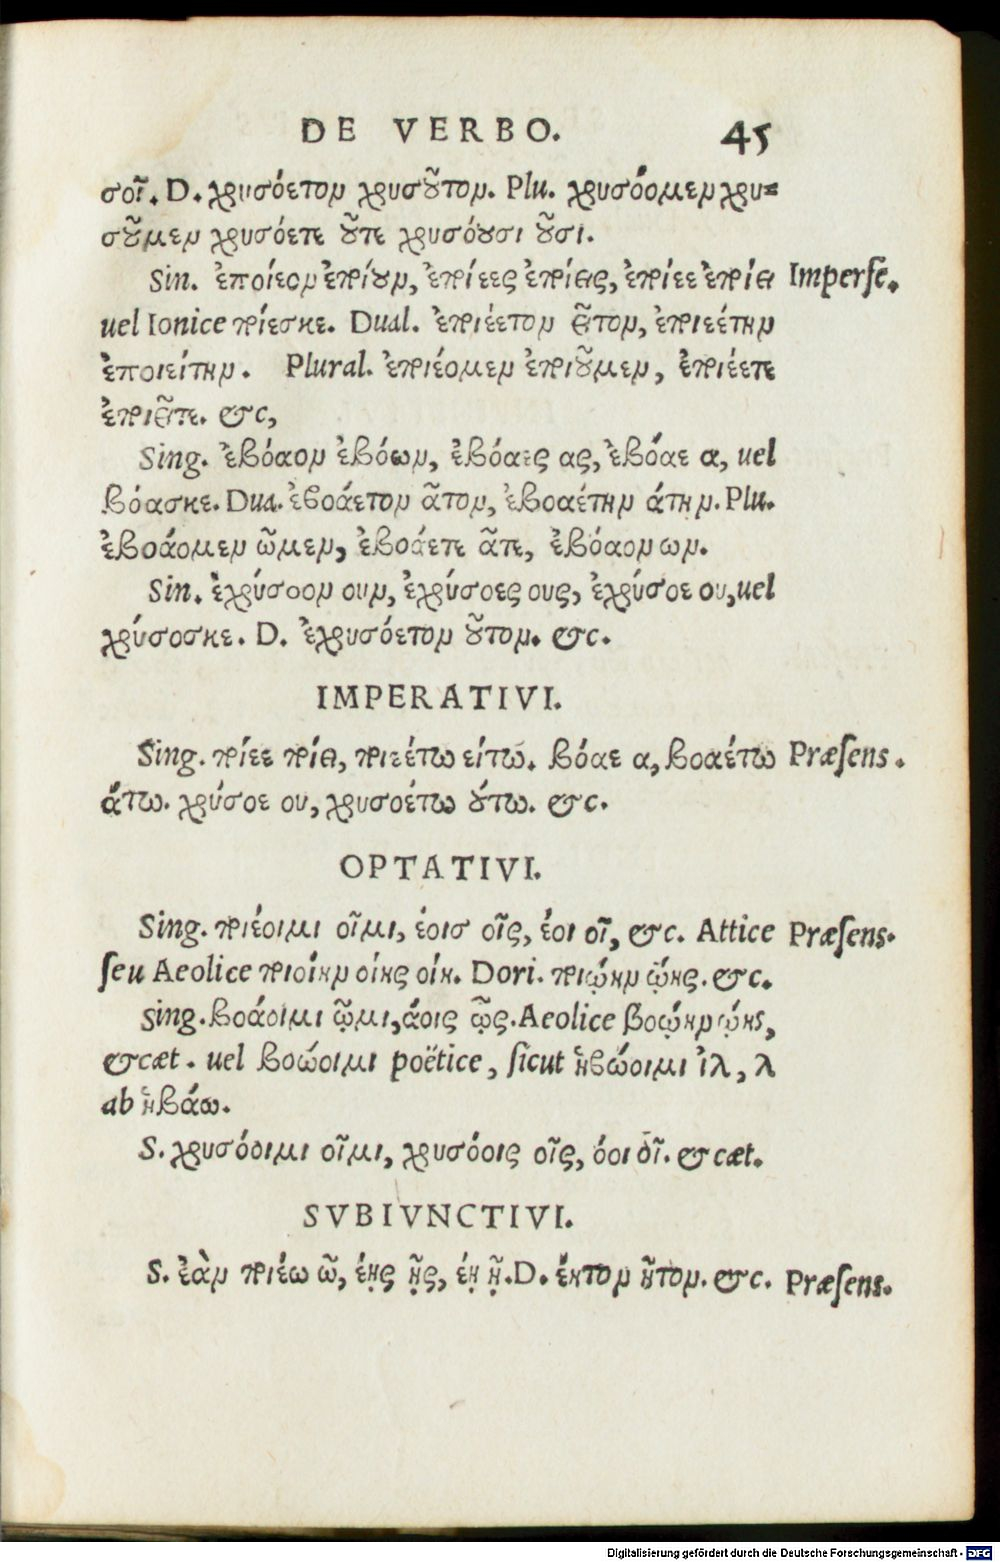 DE VERBO. 45
σοῖ. D. χρυσόετον χρυσοῦτον. Plu. χρυσόομεν χρυ=
σοῦμεν χρυσόετε οῦτε χρυσόουσι οῦσι.
Sin. ἐποίεον ἐποίουν, ἐποίεες ἐποίεις, ἐποίεε ἐποίει Imperfe.
uel Ionice ποίεσκε. Dual. ἐποιέετον εῖτον, ἐποιεέτην
ἐποιείτην. Plural. ἐποιέομεν ἐποιοῦμεν, ἐποιέετε
ἐποιεῖτε. &c,
Sing. ἐβόαον ἐβόων, ἐβόαες ας, ἐβόαε α, uel
βόασκε. Dua. ἐβοάετον ᾶτον, ἐβοαέτην άτην. Plu.
ἐβοάομεν ῶμεν, ἐβοάετε ᾶτε, ἐβόαον ων.
Sin. ἐχρύσοον ουν, ἐχρύσοες ους, ἐχρύσοε ου, uel
χρύσοσκε. D. ἐχρυσόετον οῦτον. &c.
IMPERATIVI.
Sing. ποίεε ποίει, ποιεέτω είτω. βόαε α, βοαέτω Præsens.
άτω. χρύσοε ου, χρυσοέτω ούτω. &c.
OPTATIVI.
Sing. ποιέοιμι οῖμι, έοισ οῖς, έοι οῖ, &c. Attice Præsens.
seu Aeolice ποιοίην οίης οίη. Dori. ποιῴην ῴης. &c.
Sing. βοάοιμι ῷμι, άοις ῷς. Aeolice βοῴην ῴης,
&cæt. uel βοώοιμι poëtice, sicut ἡβώοιμι ἰλ, λ
ab ἡβάω.
S. χρυσόοιμι οῖμι, χρυσόοις οῖς, όοι οῖ. &cæt.
SVBIVNCTIVI.
S. ἐὰν ποιέω ῶ, έῃς ῇς, έῃ ῇ. D. έητον ῆτον. &c. Præsens.
Digitalisierung gefördert durch die Deutsche Forschungsgemeinschaft - DFG